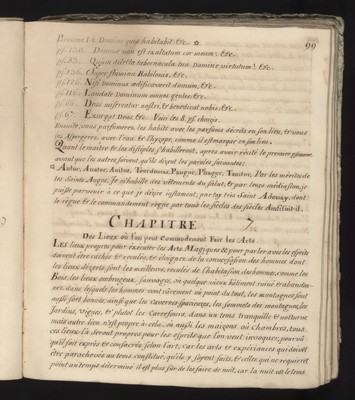 99
Pseaume 14. Domine quis habitabit &c.
ps. 130. Domine non est exaltatum cor meum. &c.
ps. 83. Quam dilecta tabernacula tua Domine virtutum! &c.
ps. 136. Super flumina Babilonis, &c.
ps. 126. Nisi Dominus ædificaverit domum, &c.
ps. 116. Laudate Dominum omnes gentes &c.
ps. 66. Deus misereatur nostri, & benedicat nobis &c.
ps. 67. Exurgat Deus &c.
Ensuite vous parfumerez les habits avec les parfums décrits en son lieu, & vous
les aspergerez avec l'eau & l'hysope, comme il est marqué en son lieu.
Quand le maitre & les disciples s'habilleront, après avoir récité le premier pseaume
avant que les autres suivent, qu'ils disent les paroles suivantes:
les Saints Anges, je m'habille des vêtements du salut, & par leurs médiations, je
puisse parvenir à ce que je désire instament, par toy très saint Adonay, dont
le règne & le commandement règne par tous les siècles des siècles Ainsi soit-il.
CHAPITRE 7
Des Lieux où l'on peut Commodement Faire les Arts
Les lieux propres pour exécuter les Arts Magiques & pour parler avec les esprits
doivent être cachés & reculés, & éloignés de la conversation des hommes, dont
les lieux déserts sont les meilleurs, reculés de l'habitation des hommes, comme les
Bois, les lieux ombrageux, sauvages, où quelque vieux bâtiment ruiné & abandon-
né, dans lesquels les hommes vont rarement ou point du tout, les montagnes sont
aussi fort bonnes, ainsi que les cavernes spacieuses, les sommets des montagnes, les
Jardins, vignes, & plutôt les Carrefours, dans un tems tranquille & nocturne
mais autre lieu n'est propre à cela, ou aussi les maisons, où Chambres, tous
ces lieux-là seront propres pour les esprits que l'on veut invoquer; pourvû
qu'il soit exprès & consacrés selon l'art, car les arts & expériences qui doivent
être parachevés au tems constitué, qu'ils y soyent faits, & celles qui ne requièrent
point un temps déterminé il est plus sûr de les faire de nuit, car la nuit est le tems